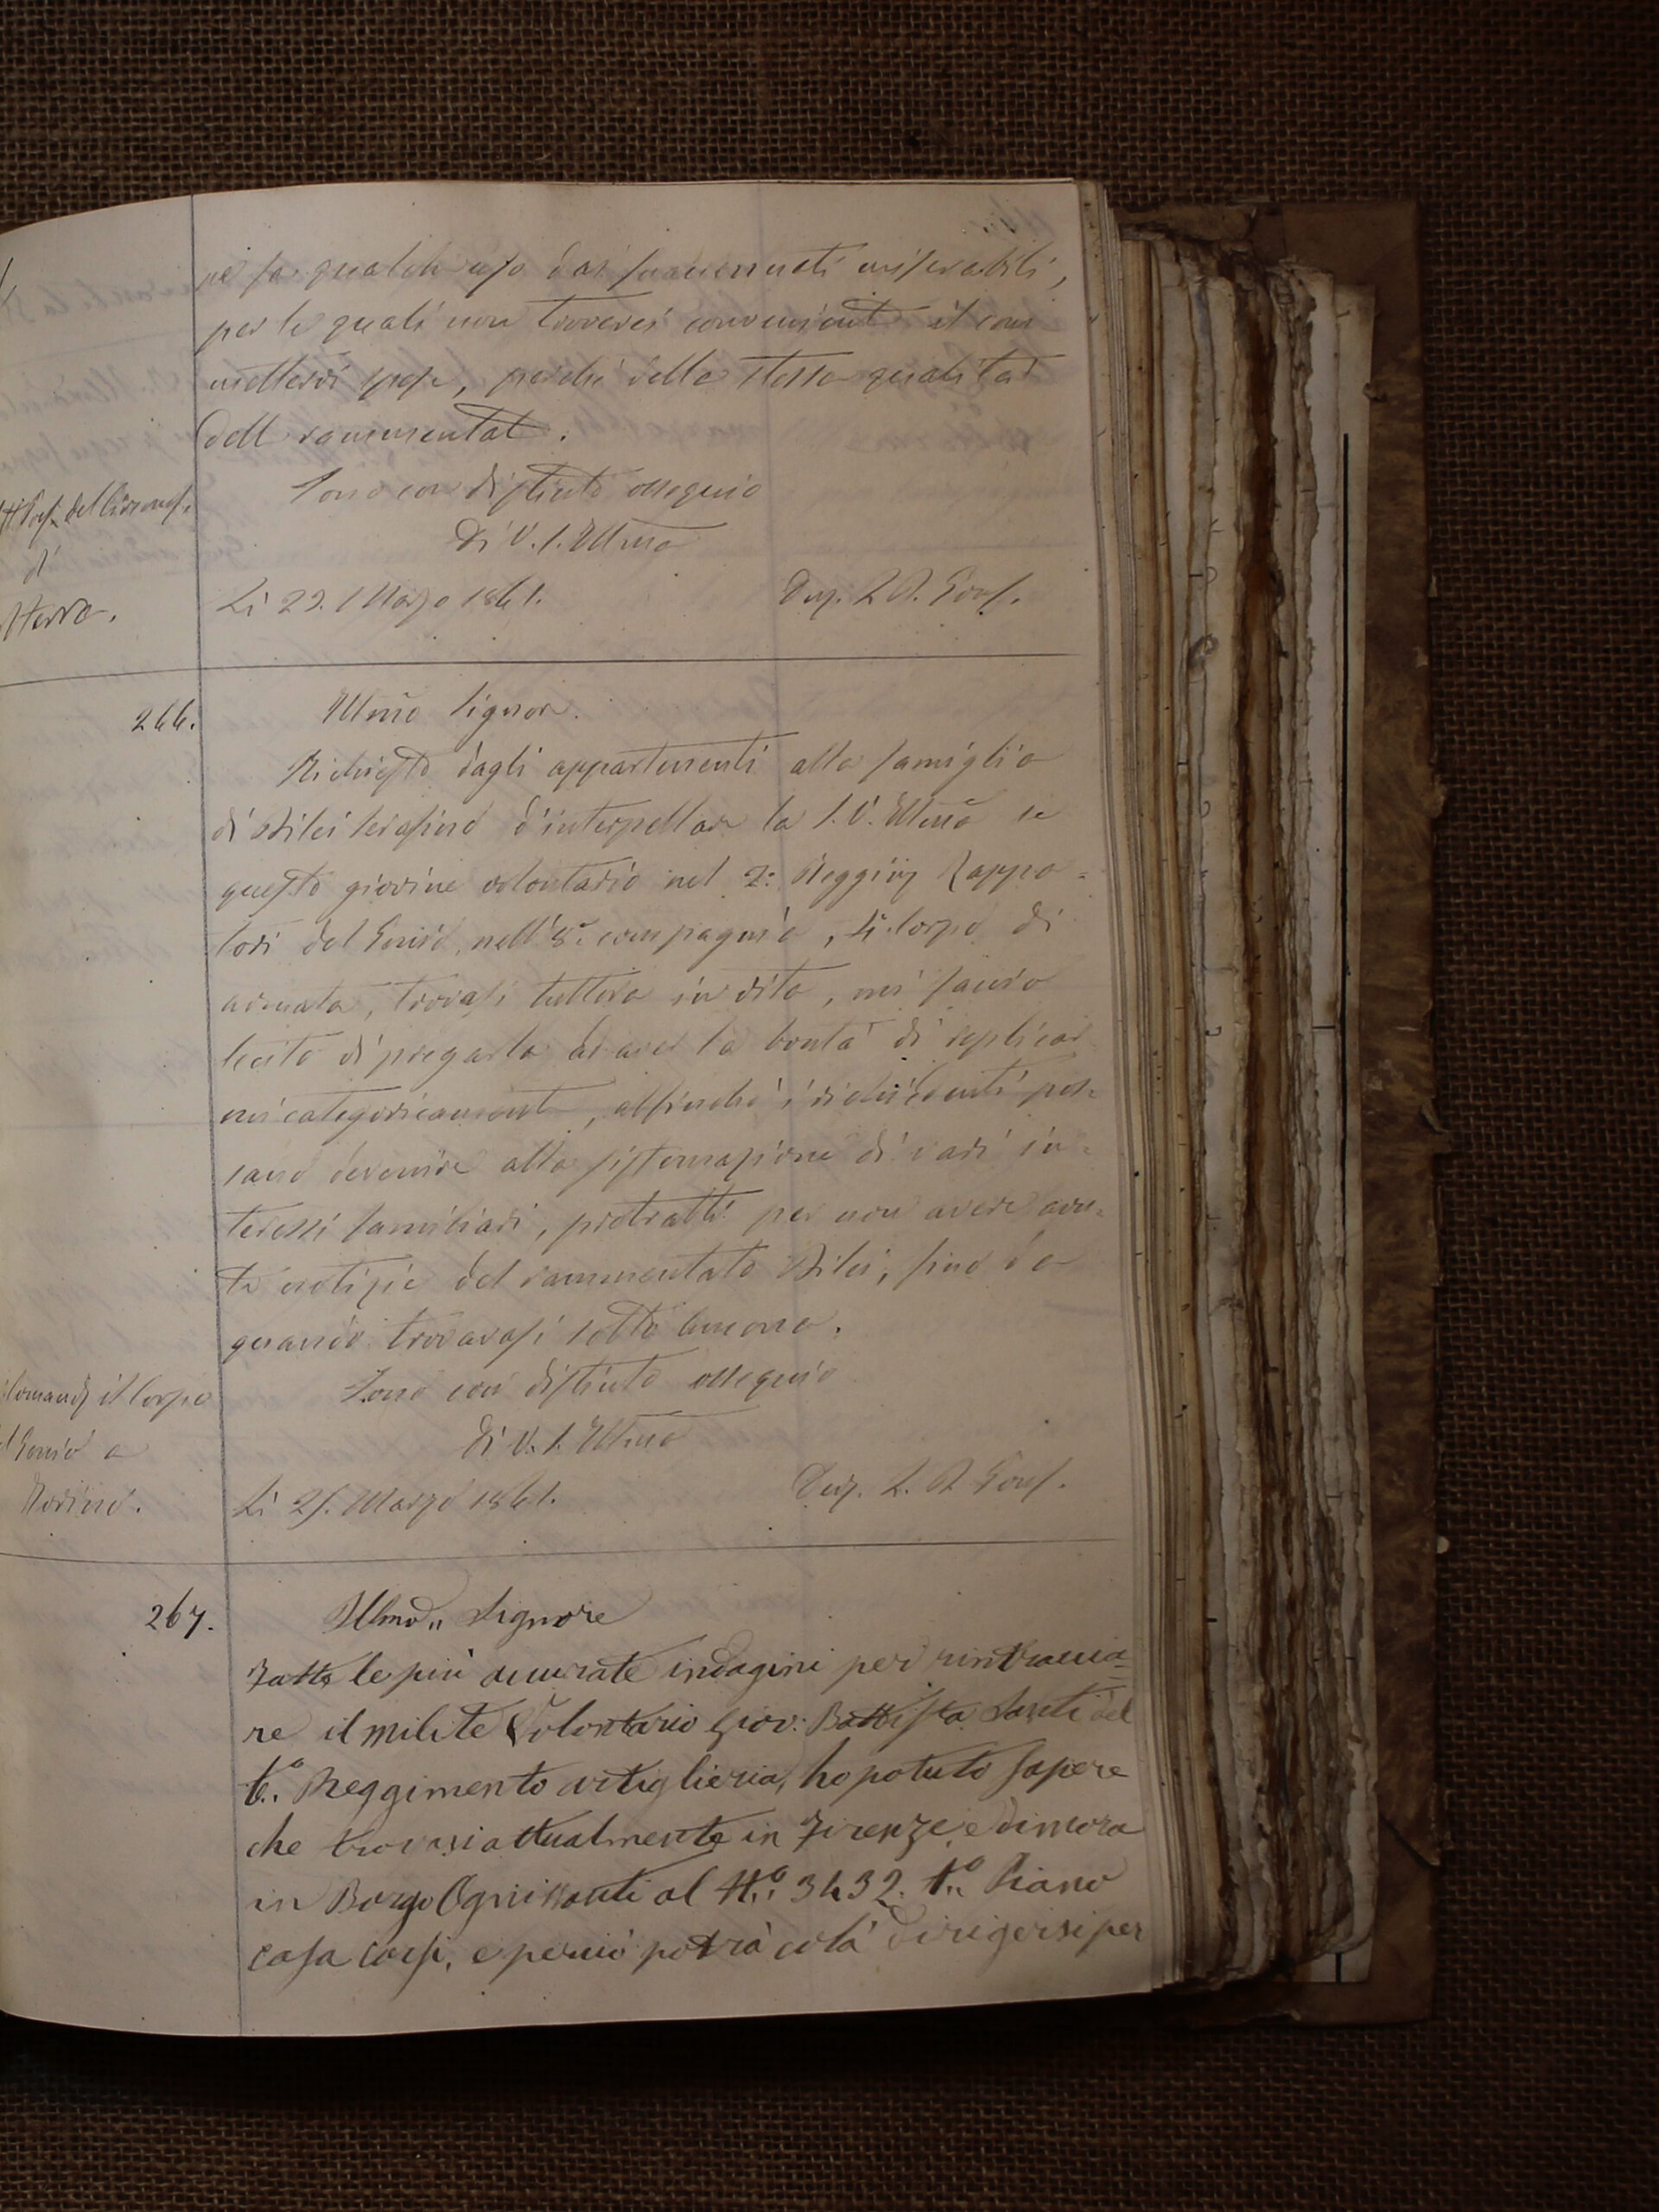 ne fa qualch uso dai summennati miserabili,
per le quali non troverei convenient il com
mettersi spese, perchè della stessa qualità
dell rammentat.
Sono con distinto ossequio
Di V. S. Illma
Lì 29. Marzo 1861.
di
266.
Illmo Signore.
Richiesto dagli appartenenti alla famiglia
di Serafino d'interpellare la S. V. Illma se
questo giovine volontario nel 2° Reggim Zappa=
tori del Genio, nell'8a compagnia, 4° Corpo di
armata, trovasi tuttora in vita, mi faccio
lecito di pregarla ad aver la bontà di replicar
mi categoricamente, affinchè i richiedenti pos=
sano devenire alla sistemazione di vari in=
teressi familiari, protratti per non avere avu=
te notizie del rammentato, fino da
quando trovavasi sotto Ancona.
Sono con distinto ossequio
Di V. S. Illma
Comand il Corpo
l Genio a
Torino.
Lì 29. Marzo 1861.
267.
Illmo,, Signore
Fatte le più accurate indagini per rintraccia=
re il milite Volontario Giov: Battista Santi del
6.° Reggimento artiglieria, ho potuto sapere
che trovasi attualmente in Firenze, e dimora
in Borgo Ognissanti al N.° 3432. 1.° Piano
casa Corsi, e perciò potrà colà dirigersi per